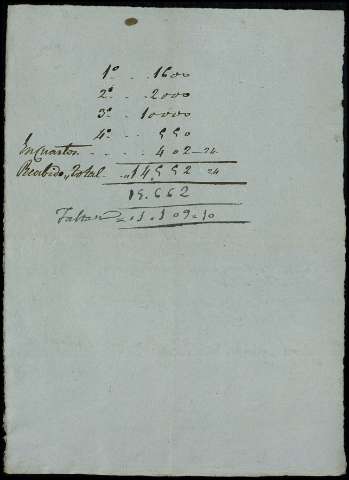 1º .. 1600
2º .. 2000
3º .. 10000
4º .. 550
En Cuartos .... 402-24
Recibido, Total .. 14552 24
15.662
Faltan = 01.109-10